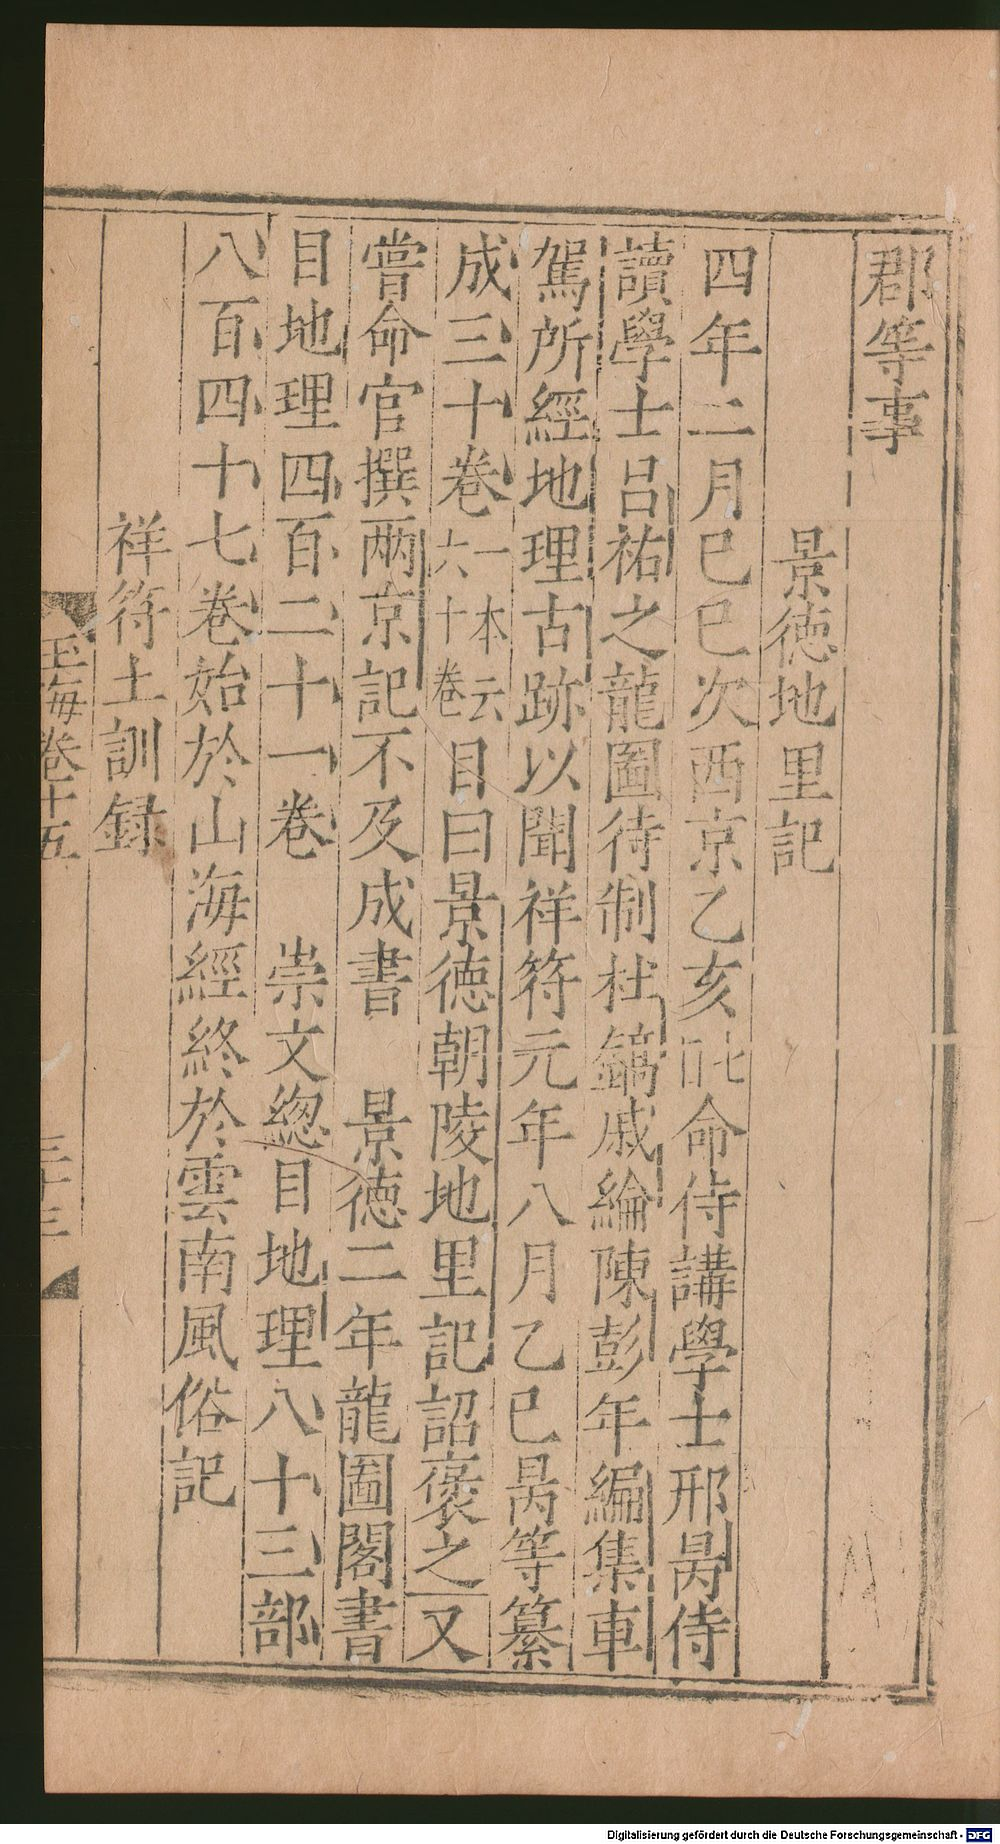 郡等事
景德地里記
四年二月已巳次西京乙亥
命侍講學士邢昺侍
讀學士呂祐之龍圖待制杜鎬戚綸陳彭年編集車
駕所經地理古跡以聞祥符元年八月乙巳昺等纂
成三十卷一本云六十卷目曰景德朝陵地里記詔褒之又
嘗命官撰兩京記不及成書　景德二年龍圖閣書
目地理四百二十一卷　崇文總目地理八十三部
八百四十七卷始於山海經終於雲南風俗記
祥符土訓録
玉海卷十五　三十三
Digitalisierung gefördert durch die Deutsche Forschungsgemeinschaft - DFG